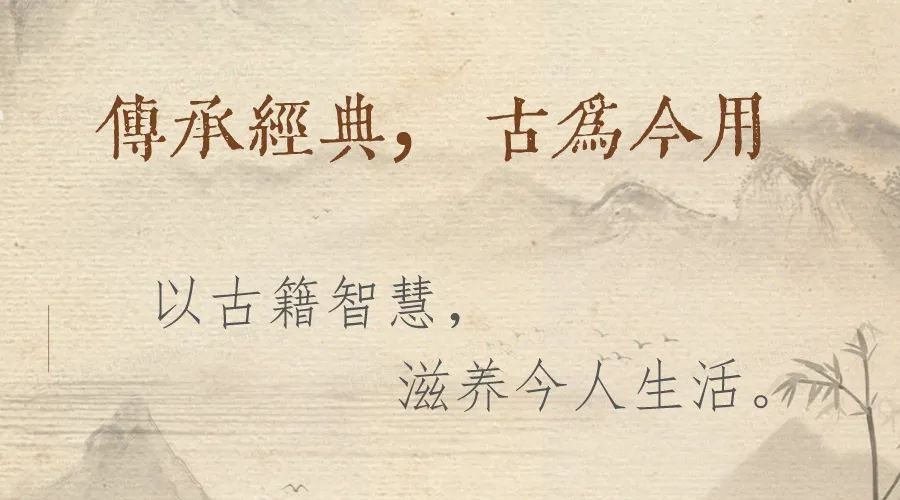 傳承經典， 古爲今用
以古籍智慧，
滋养今人生活。